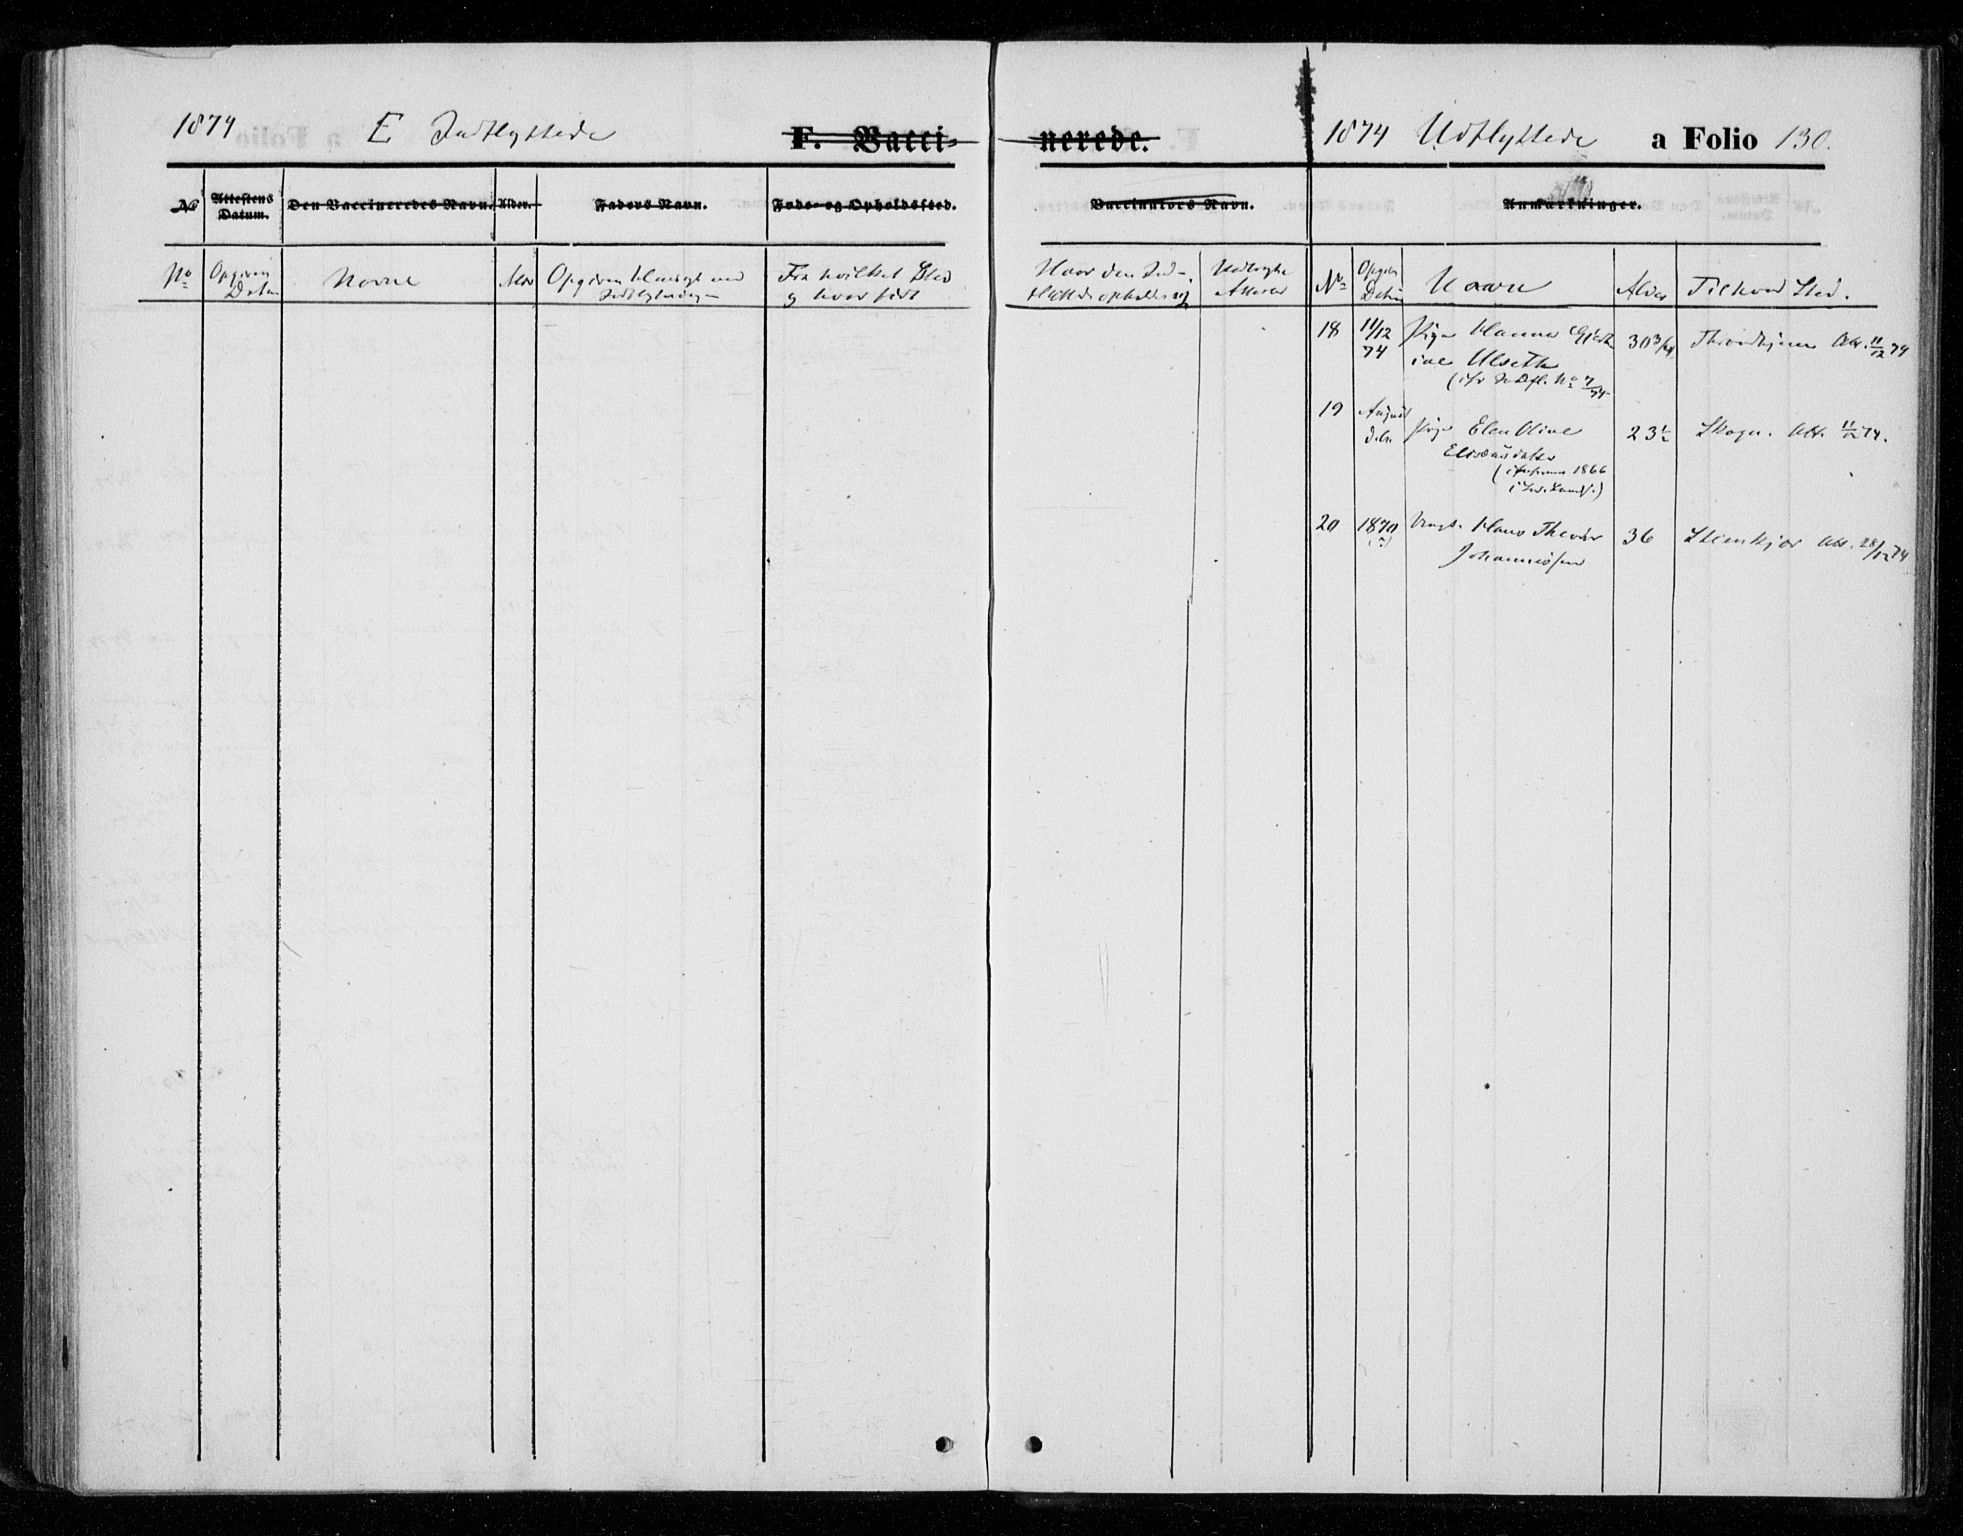 1874 E Indflyttede F. Vacci-
nerede. 1874 Udflyttede a Folio 130.
No Attestens Datum. Den Vaccineredes Navn. Alder. Faders Navn. Føde- og Opholdssted.
Vaccinators Navn. Anmærkninger.
No Opgiven Datum Navne Alder Opgiven Hensigt med Indflytningen Fra hvilket Sted og hvor født
Hvor den Ind-
flyttede opholder sig
No Datum Navne Alder Til hvad Sted.
18 11/12 74 Pige Hanna Gjert
ine Ulseth 30 3/4 Throndhjem Att. 11/12 74
(cfr Indfl. No 7/74
19 August d.A. Pige Elen Oline
Eliseusdatter 23 1/2 Skogn. Att. 11/12 74.
1866
20 1870 (?) Ungk. Hans Theodor
Johannissen 36 Stenkjær Att. 28/12 74